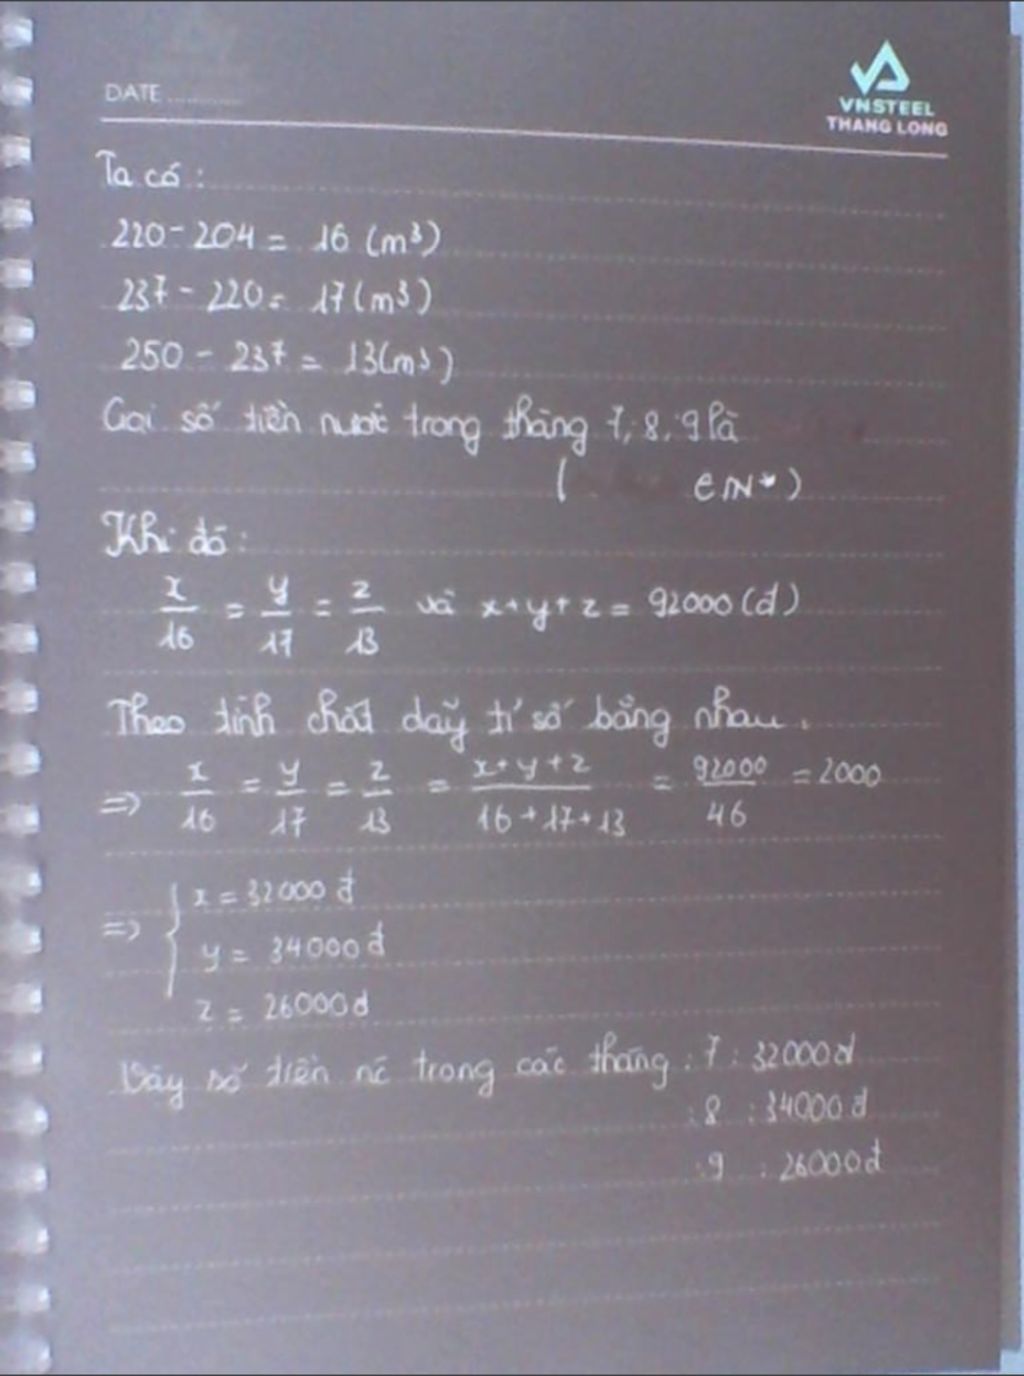 DATE ...........
VNSTEEL
THANG LONG
Ta có:
220 - 204 = 16 (m³)
237 - 220 = 17 (m³)
250 - 237 = 13 (m³)
Gọi số tiền nước trong tháng 7, 8, 9 là
( ∈ N*)
Khi đó:
x/16 = y/17 = z/13 và x+y+z = 92000 (đ)
Theo tính chất dãy tỉ số bằng nhau.
=> x/16 = y/17 = z/13 = x+y+z/16+17+13 = 92000/46 = 2000
=> { x = 32000 đ
y = 34000 đ
z = 26000 đ
Vậy số tiền nc trong các tháng : 7 : 32000 đ
: 8 : 34000 đ
: 9 : 26000 đ